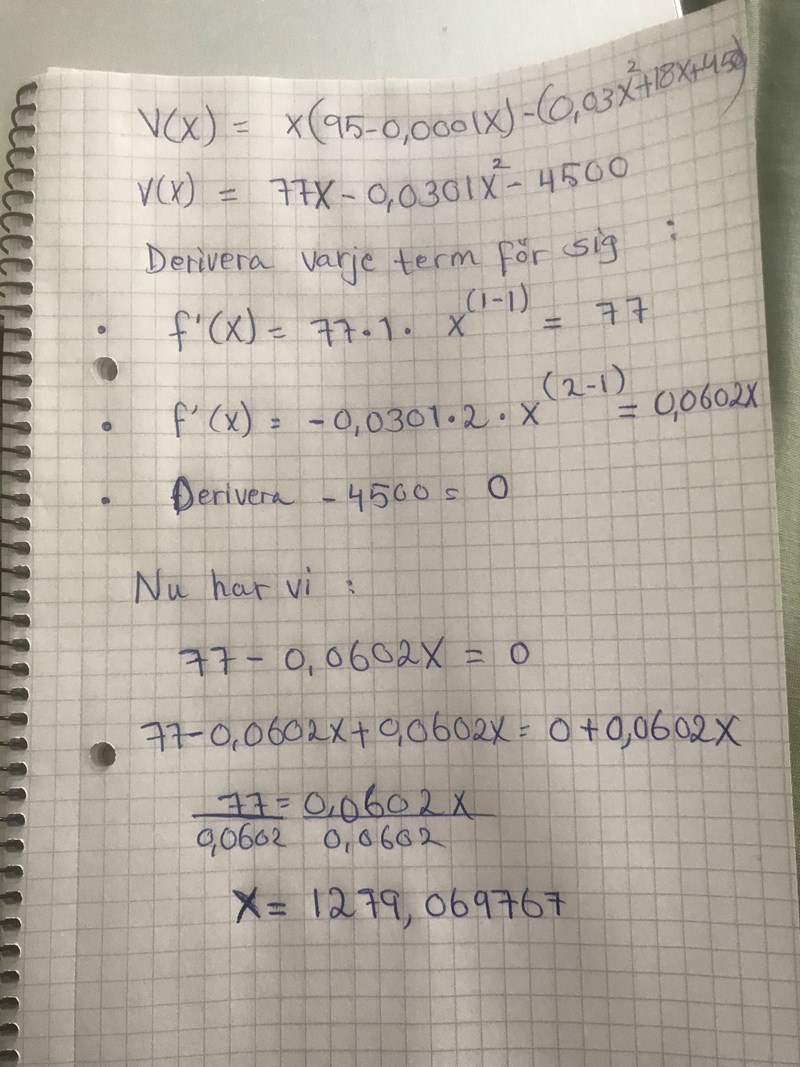 V(x) = x(95-0,0001x)-(0,03x²+18x+4500)
V(x) = 77x - 0,0301x² - 4500
Derivera varje term för sig :
• f'(x) = 77·1· x^(1-1) = 77
• f'(x) = -0,0301·2·x^(2-1) = 0,0602x
• Derivera -4500 = 0
Nu har vi :
77 - 0,0602x = 0
77-0,0602x+0,0602x = 0+0,0602x
77 = 0,0602x
0,0602 0,0602
x = 1279,069767